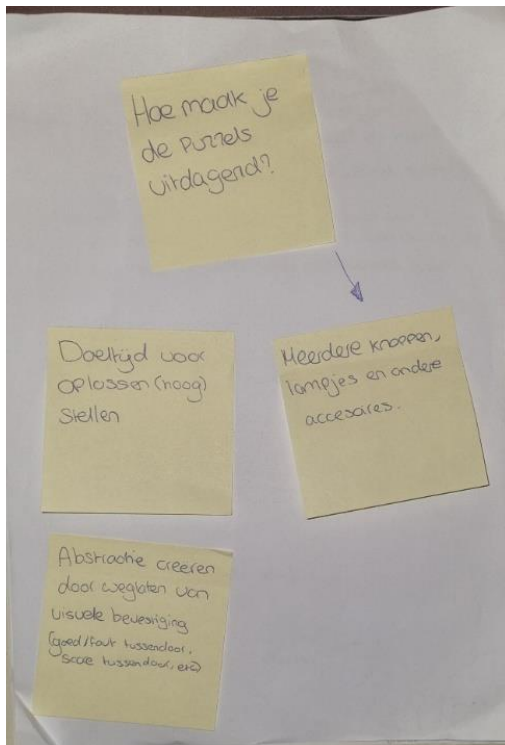 Hoe maak je
de puzzels
uitdagend?
Doeltijd voor
oplossen (hoog)
stellen
Meerdere knoppen,
lampjes en andere
accesoires.
Abstractie creëren
door weglaten van
visuele bevestiging
(goed/fout tussendoor,
score tussendoor, etc)